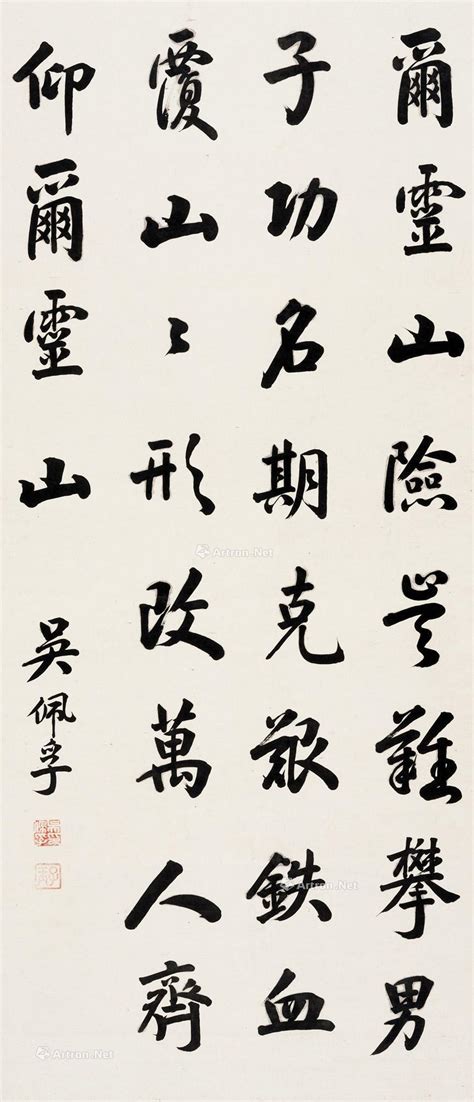 爾靈山險豈難攀男
子功名期克艱鉄血
覆山〻形改萬人齊
仰爾靈山
吳佩孚
Artron.Net
Artron.Net
Artron.Net